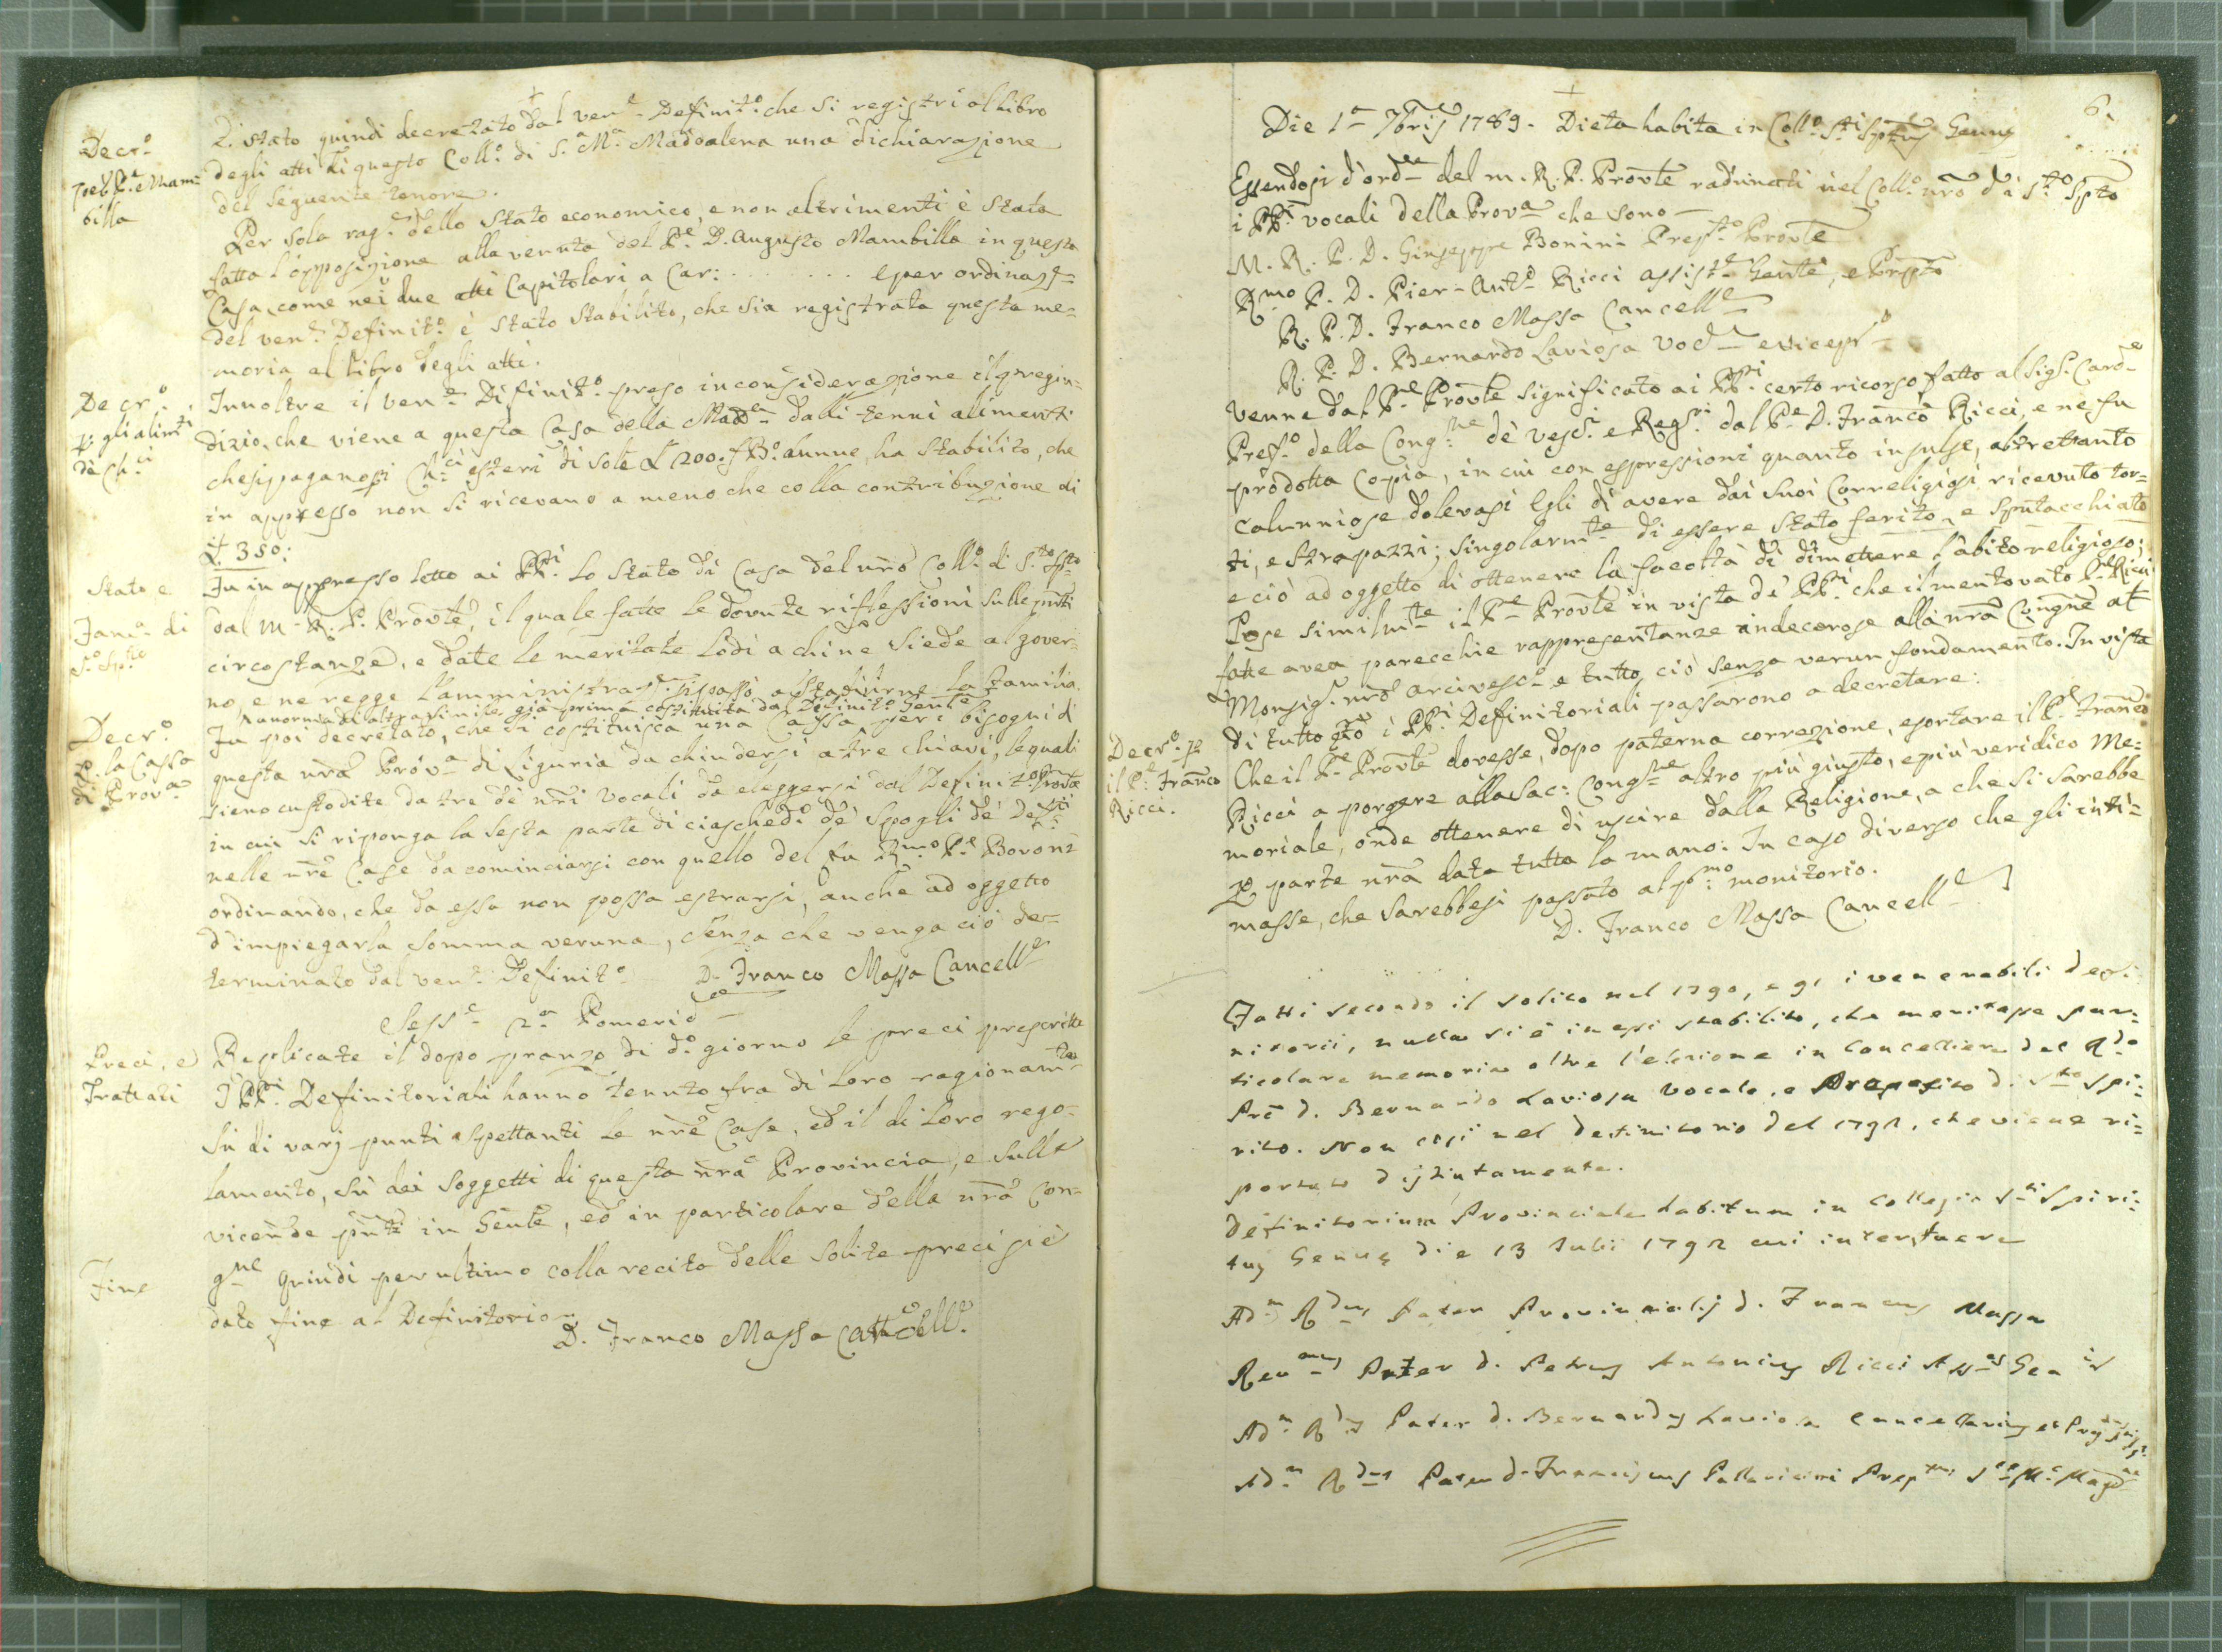 Decr.o
pel P.e Mam=
billa
È stato quindi decretato dal ven.e Definit.o che si registri al libro
degli atti di questo Coll.o di S.a M.a Maddalena una dichiarazione
del seguente tenore.
Per sola rag.e dello Stato economico, e non altrimenti è stata
fatta l'opposizione alla venuta del P.e D. Augusto Mambilla in questa
Casa, come nei due atti Capitolari a Car: . . . . . . . . e per ordinaz.e
del ven.e Definit.o è stato stabilito, che sia registrata questa me=
moria al libro degli atti.
Decr.o
p. gli alim.ti
dè Ch.ci
Innoltre il ven.e Difinit.o preso in considerazione il pregiu=
dizio, che viene a questa Casa della Mad.a dalli tenui alimenti
che si pagano Ch.ci esteri di sole £ 200. f. B.o annue, ha stabilito, che
in appresso non si ricevano a meno che colla contribuzione di
£ 350:
Stato e
Fam.a di
S.o Sp.to
Fu in appresso letto ai PP.i lo Stato di Casa del nrõ Coll.o di S.to Spto
dal M. R. P. Provle, il quale fatte le dovute riflessioni sulle pnti
circostanze, e date le meritate lodi a chi ne siede al gover=
no, e ne regge l'amministraz.e si passò a stabilirne la Famiglia.
Decr.o
p. la Cassa
di Prov.a
a norma di altra simile già prima costituita dal Definit.o Genle
Fu poi decretato, che si costituisca una Cassa per i bisogni di
questa nrã Prov.a di Liguria da chiudersi a tre chiavi, le quali
sieno custodite da tre dè nri Vocali da eleggersi dal Definit.o Provle
in cui si riponga la sesta parte di ciasched.o dè Spogli dè Def.ti
nelle nrẽ Case da cominciarsi con quello del fu R.mo P.e Boroni
ordinando, che da essa non possa estrarsi, anche ad oggetto
d'impiegarla somma veruna, senza che venga ciò de=
terminato dal ven.e Definit.o D. Franco Massa Cancell.e
Sess.e 2.a Pomerid.e
Preci, e
Trattati
Replicate il dopo pranzo di d.o giorno le preci prescritte
I PP.i Definitoriali hanno tenuto fra di loro ragionam.to
sù di varj punti aspettanti le nrẽ Case, ed il di loro rego=
lamento, sù dei soggetti di questa nrã Provincia, e sulle
vicende pnti in Genle, ed in particolare della nrã Con=
g.ne Quindi per ultimo colla recita delle solite preci si è
Fine
dato fine al Definitorio.
D. Franco Massa Cancell.e
6.
Die 1.a 7bris 1789. Dieta habita in Coll.o S.ti Sptus Genuę
Essendosi d'ord.e del m. R. P. Provle radunati nel Coll.o nrõ di S.to Spto
i PP.i vocali della Prov.a che sono
M. R. P. D. Giuseppe Bonini Prep.to Provle
R.mo P. D. Pier-Ant.o Ricci assist.e Genle, e Prpto
R. P. D. Franco Massa Cancell.e
R. P. D. Bernardo Laviosa Voc.le e vicepr.o
Venne dal P.e Provle significato ai PP.i certo ricorso fatto al Sig.r Card.e
Pref.o della Cong.ne dè Vesc.i e Reg.ri dal P.e D. Franco Ricci, e ne fu
prodotta Copia, in cui con espressioni quanto insulse, altrettanto
calunniose dolevasi Egli di avere dai suoi Correligiosi ricevuto tor=
ti, e strapazzi; singolarm.te di essere stato ferito, e sputacchiato
e ciò ad oggetto di ottenere la facoltà di dimettere l'abito religioso;
Pose similm.te il P.e Provle in vista dè PP.i che il mentovato P.e Ricci
fatte avea parecchie rappresentanze indecorose alla nrã Congne al
Monsig.r nrõ Arcivesc.o e tutto ciò senza verun fondamento. In vista
di tutto qto i PP.i Definitoriali passarono a decretare:
Decr.o p
il P.e Franco
Ricci.
Che il P.e Provle dovesse, dopo paterna correzione, esortare il P.e Franco
Ricci a porgere alla Sac: Cong.ne altro più giusto, e più veridico Me=
moriale, onde ottenere di uscire dalla Religione, a che si sarebbe
p parte nrã data tutta la mano: In caso diverso che gli inti=
masse, che sarebbesi passato al p.mo monitorio.
D. Franco Massa Cancell.e
Fatti secondo il solito nel 1790, e 91 i venerabili defi=
nitorii, nulla si è in essi stabilito, che meritasse par=
ticolare memoria oltre l'elezione in Cancelliere del R.do
Prẽ d. Bernardo Laviosa Vocale, e Preposito di S.to Spi=
rito. Non così nel Definitorio del 1792, che viene ri=
portato distintamente.
Definitorium Provinciale habitum in Collegio S.ti Spiri=
tus Genuę die 13 Julii 1792 cui interfuere
Ad.m R.dus Pater Provincialis d. Francus Massa
Rev.mus Pater d. Petrus Antonius Ricci Ass.us Gen.is
Ad.m R.dus Pater d. Bernardus Laviosa Cancellarius et
Ad.m R.dus Pater d. Franciscus Pallavicini Prep.tus S.ae M.e Magd.ae